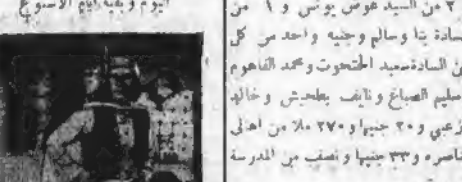 ٢ من السيد عوض يونس و ١ من
سادة بنا وسالم وجنيه واحد من كل
ن السادة سعيد ومحمد الفاهوم
سليم الصباغ ونايف بطحيش وخالد
زعبي و ٢٠ جنيها و ٢٧٠ ملا من اهالى
ناصره و ٣٣ جنيها ونصف من المدرسة
اليوم وبقية ايام الاسبوع